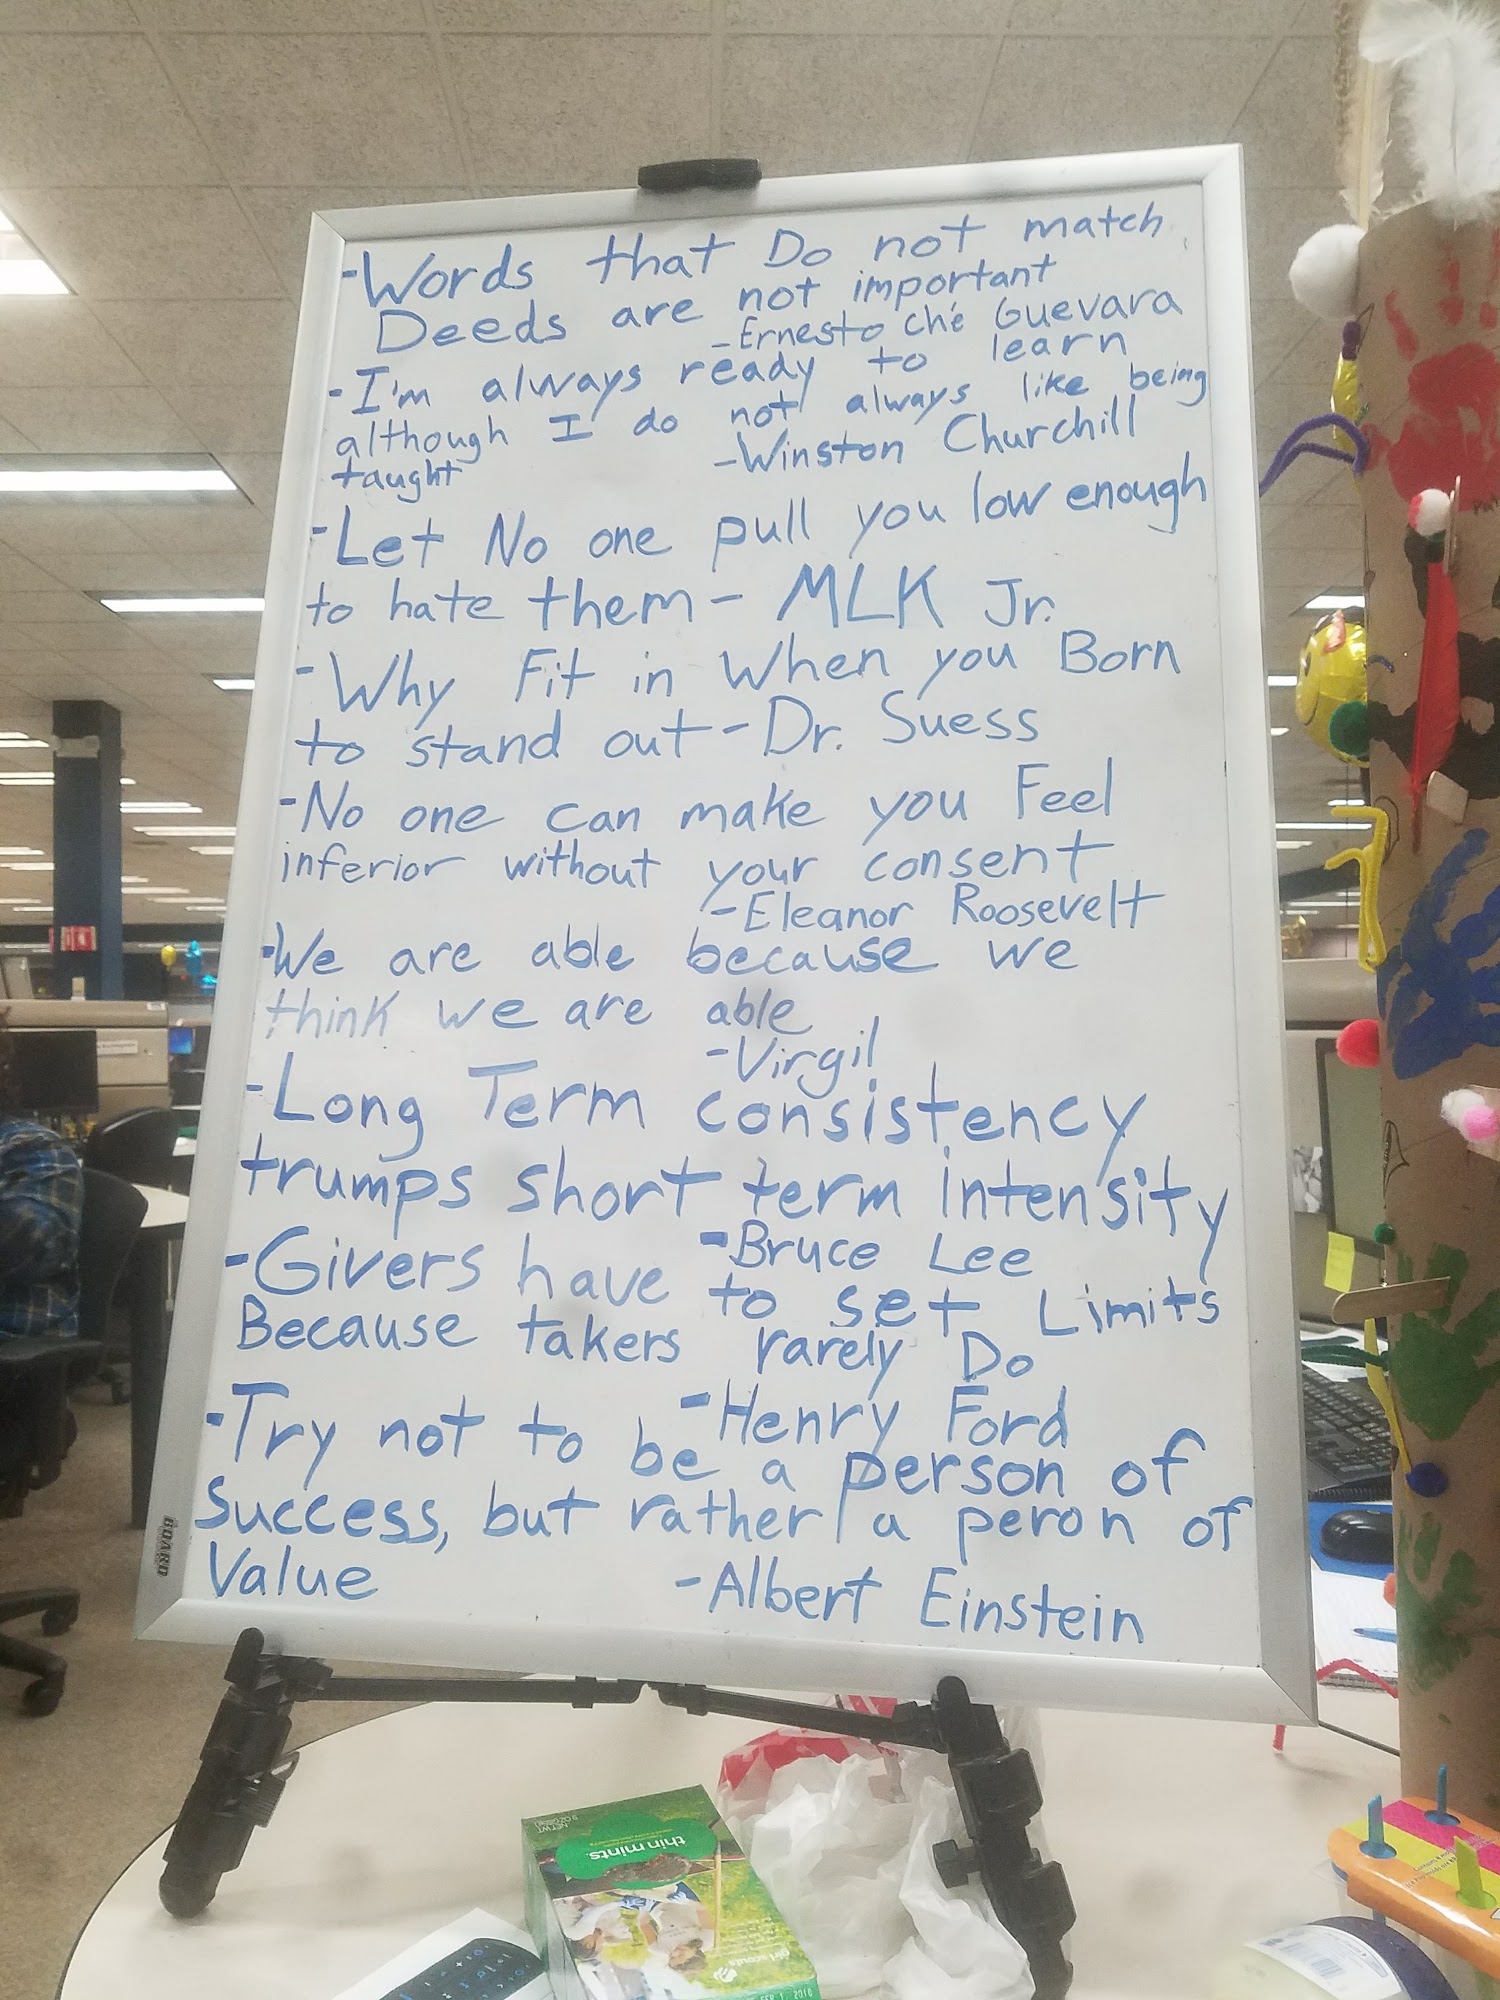 -Words that Do not match
Deeds are not important
-Ernesto Ché Guevara
-I'm always ready to learn
although I do not always like being
taught
-Winston Churchill
-Let No one pull you low enough
to hate them - MLK Jr.
-Why Fit in When you Born
to stand out - Dr. Suess
-No one can make you Feel
inferior without your consent
-Eleanor Roosevelt
-We are able because we
think we are able
-Virgil
-Long Term consistency
trumps short term intensity
-Bruce Lee
-Givers have to set Limits
Because takers rarely Do
-Henry Ford
-Try not to be a person of
Success, but rather a peron of
Value
-Albert Einstein
BOARD
thin mints
girl scouts